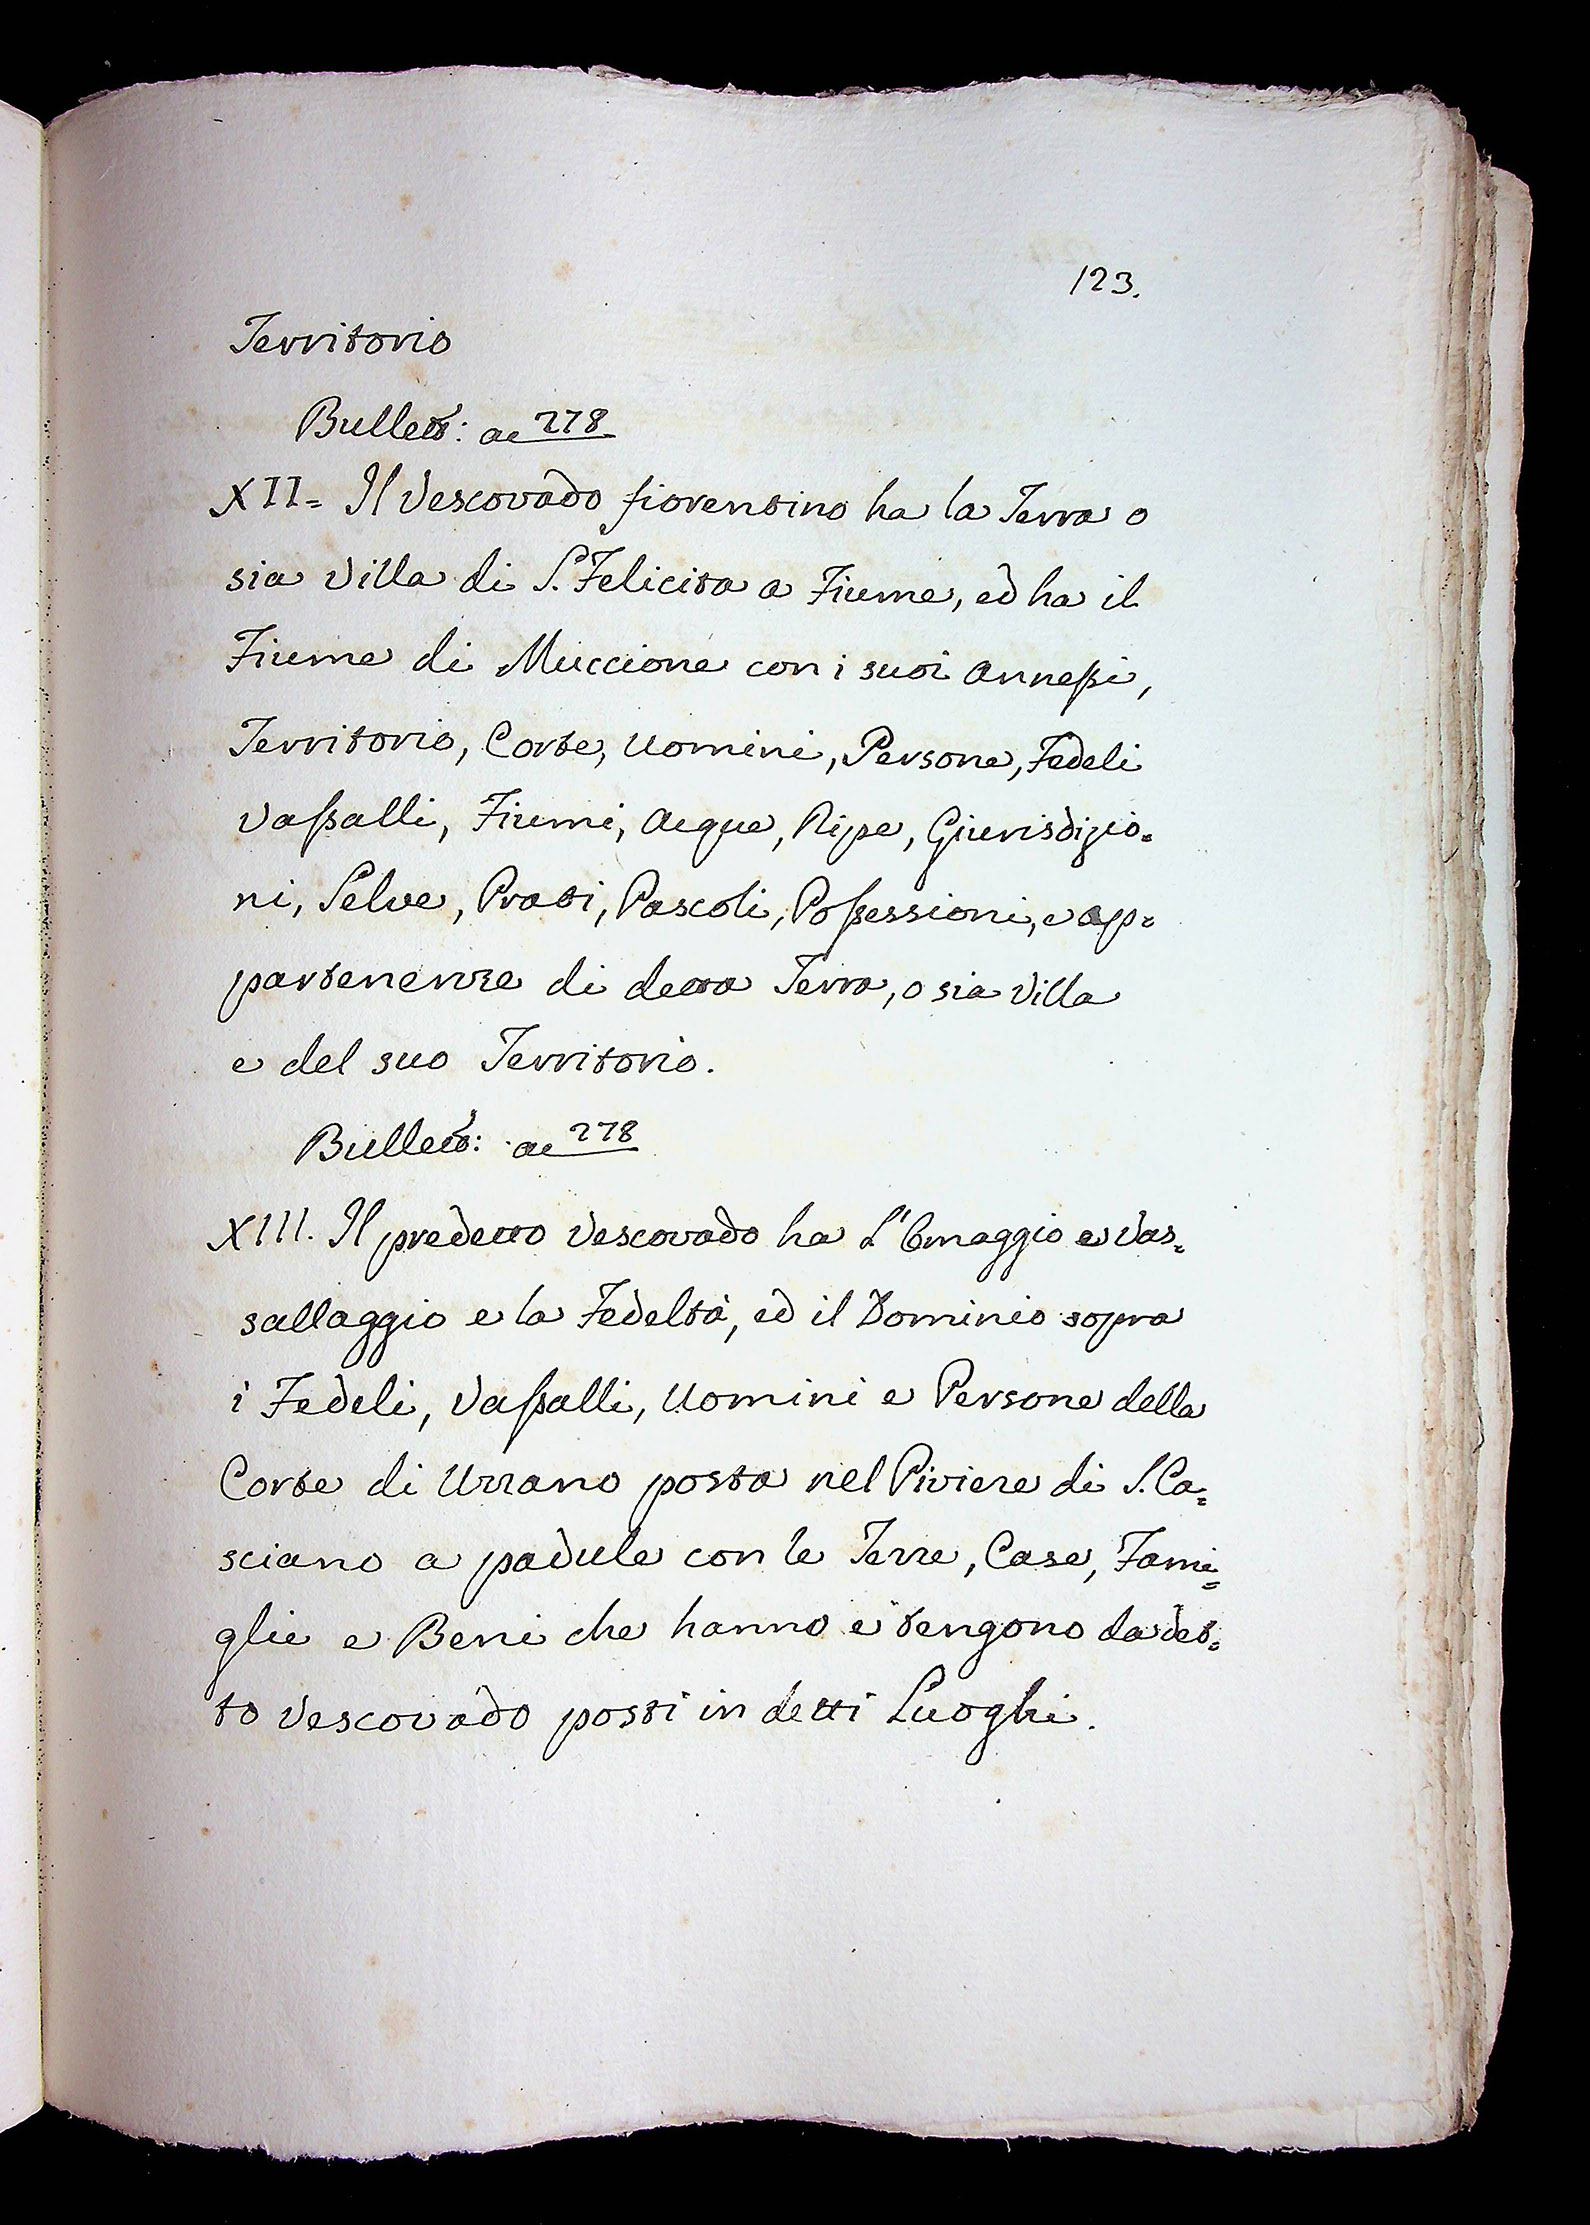 123.
Territorio
Bullett: ac 278
XII= Il Vescovado fiorentino ha la Terra o
sia Villa di S. Felicita a Fiume, ed ha il
Fiume di Muccione con i suoi Annessi,
Territorio, Corte, Uomini, Persone, Fedeli
Vassalli, Fiumi, Acque, Ripe, Giurisdizio=
ni, Selve, Prati, Pascoli, Possessioni, e ap=
partenenze di detta Terra, o sia Villa
e del suo Territorio.
Bullett: ac 278
XIII. Il predetto Vescovado ha L'Omaggio e Vas=
sallaggio e la Fedeltà, ed il Dominio sopra
i Fedeli, Vassalli, Uomini e Persone della
Corte di Uzzano posta nel Piviere di S. Ca=
sciano a padule con le Terre, Case, Fami=
glie e Beni che hanno e tengono da det=
to Vescovado posti in detti Luoghi.